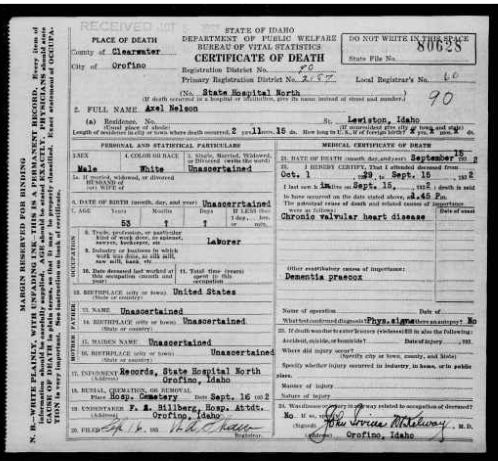 RECEIVED
STATE OF IDAHO
DEPARTMENT OF PUBLIC WELFARE
BUREAU OF VITAL STATISTICS
CERTIFICATE OF DEATH
DO NOT WRITE IN THIS SPACE
80628
State File No.
PLACE OF DEATH
County of Clearwater
City of Orofino
Registration District No. 90
Primary Registration District No. 2157
Local Registrar's No. 60
90
(No. State Hospital North
(If death occurred in a hospital or institution, give its name instead of street and number.)
2. FULL NAME Axel Nelson
(a) Residence. No. St. Lewiston, Idaho
(Usual place of abode) (If nonresident give city or town and state)
Length of residence in city or town where death occurred, 2 yrs. 11 mos. 15 ds.
PERSONAL AND STATISTICAL PARTICULARS
MEDICAL CERTIFICATE OF DEATH
3. SEX 4. COLOR OR RACE 5. Single, Married, Widowed,
Male White Unascertained
21. DATE OF DEATH (month, day, and year) September 15
22. I HEREBY CERTIFY, That I attended deceased from
Oct. 1 1929, Sept. 15, 1932
I last saw h im on Sept. 15, 1932; death is said
to have occurred on the date stated above, at 1.45 P m.
The principal cause of death and related causes of importance
were as follows:
Chronic valvular heart disease
5a. If married, widowed, or divorced
HUSBAND of
(or) WIFE of
6. DATE OF BIRTH (month, day, and year) Unascertained
7. AGE Years Months Days If LESS than
53 ? ?
OCCUPATION
8. Trade, profession, or particular
kind of work done, as spinner,
sawyer, bookkeeper, etc. Laborer
9. Industry or business in which
work was done, as silk mill,
saw mill, bank, etc.
10. Date deceased last worked at
this occupation (month and
year)
11. Total time (years)
spent in this
occupation
Other contributory causes of importance:
Dementia praecox
12. BIRTHPLACE (city or town) United States
(State or country)
FATHER
13. NAME Unascertained
14. BIRTHPLACE (city or town) Unascertained
(State or country)
MOTHER
15. MAIDEN NAME Unascertained
16. BIRTHPLACE (city or town) Unascertained
(State or country)
Name of operation Date of
What test confirmed diagnosis? Phys.signs Was there an autopsy? No
23. If death was due to external causes (violence) fill in also the following:
Accident, suicide, or homicide? Date of injury 193
Where did injury occur?
(Specify city or town, county, and State)
Specify whether injury occurred in industry, in home, or in public
place.
Manner of injury
Nature of injury
17. INFORMANT Records, State Hospital North
(Address) Orofino, Idaho
18. BURIAL, CREMATION, OR REMOVAL
Place Hosp. Cemetery Date Sept. 16 1932
19. UNDERTAKER Billberg, Hosp. Attdt.
(Address) Orofino, Idaho
20. FILED Sep 16, 193
Registrar.
24. Was disease or injury in any way related to occupation of deceased?
No If so, specify
(Signed) John
(Address) Orofino, Idaho
MARGIN RESERVED FOR BINDING
N. B.—WRITE PLAINLY, WITH UNFADING INK—THIS IS A PERMANENT RECORD. Every item of
information should be carefully supplied. AGE should be stated EXACTLY. PHYSICIANS should state
CAUSE OF DEATH in plain terms, so that it may be properly classified. Exact statement of OCCUPA-
TION is very important. See instructions on back of certificate.